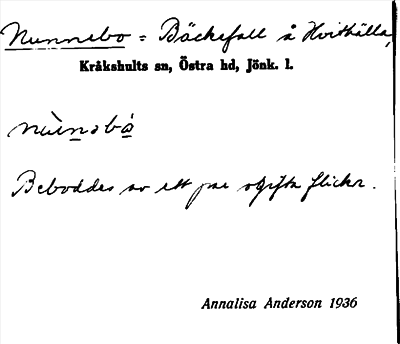 Nunnebo = Bäckefall å Hvithälla,
Kråkshults sn, Östra hd, Jönk. l.
nùnəbó
Beboddes av ett par ogifta flickor.
Annalisa Anderson 1936